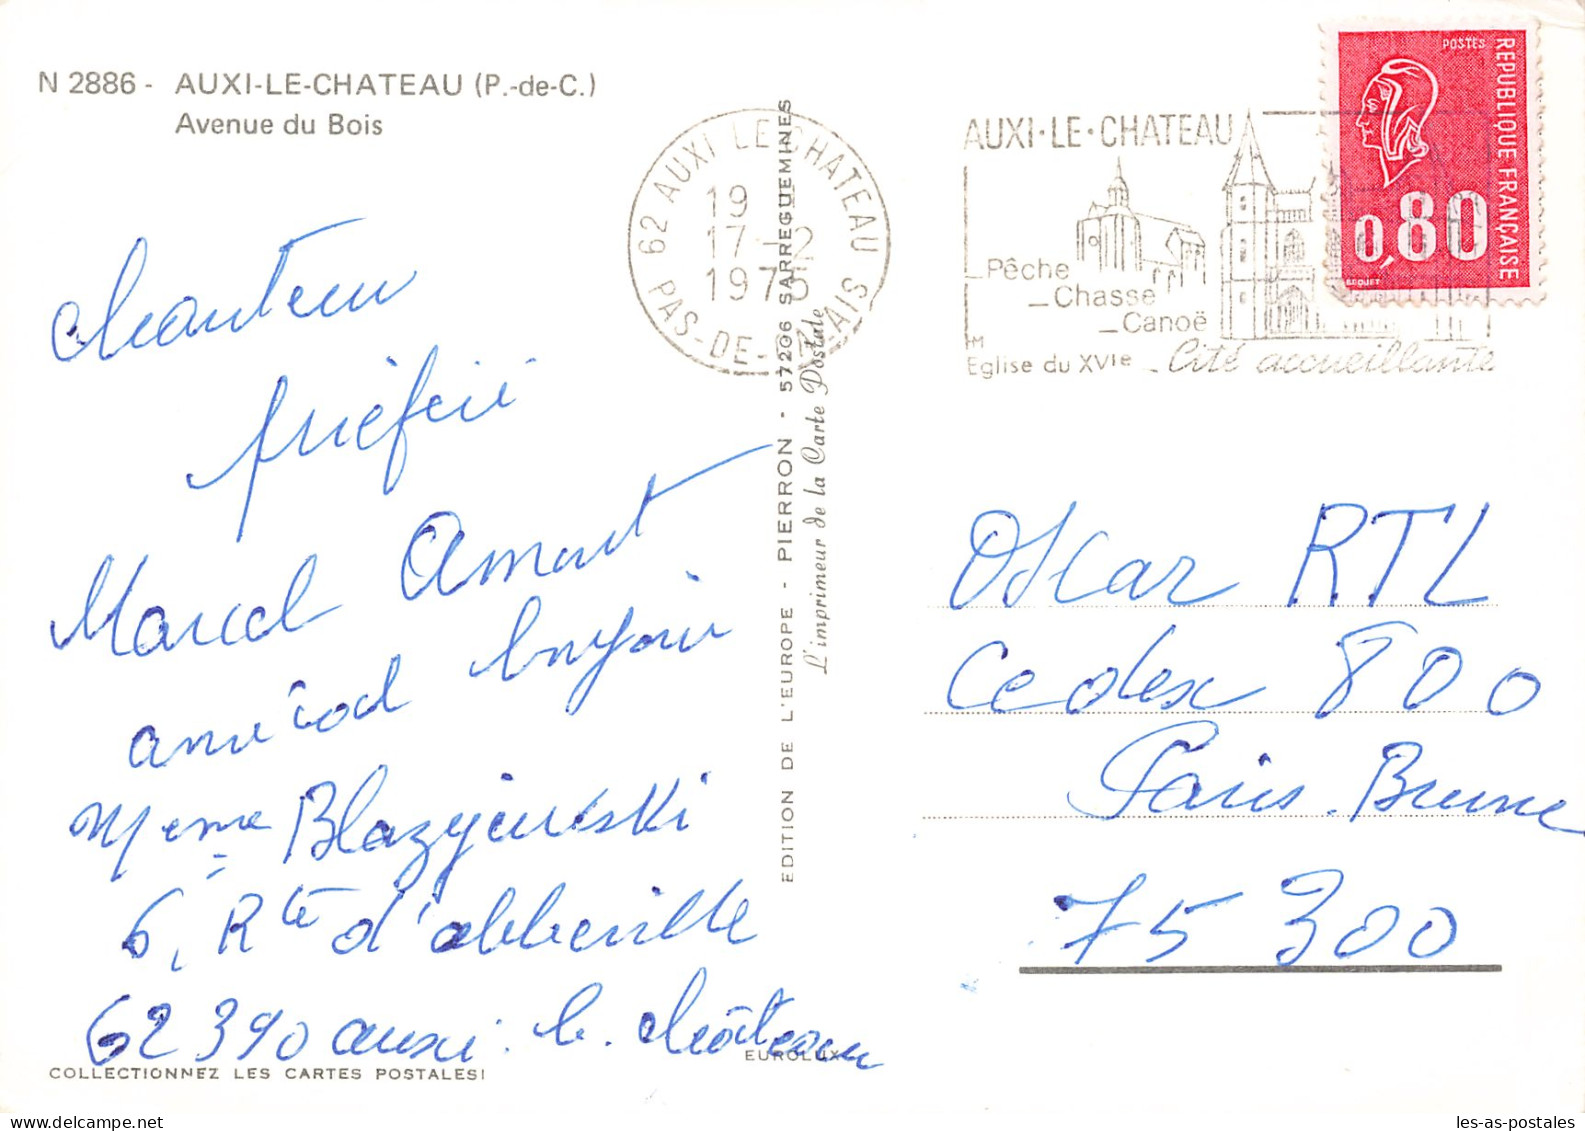 N 2886 - AUXI-LE-CHATEAU (P.-de-C.)
Avenue du Bois
chanteur
préféré
Marcel Amont
amical bonjour
Mme Blazyewski
6, Rte d'abbeville
62390 auxi. le. château
COLLECTIONNEZ LES CARTES POSTALES!
EUROLUX
EDITION DE L'EUROPE - PIERRON - 57206 SARREGUEMINES
L'imprimeur de la Carte Postale
62 AUXI LE CHATEAU
19 H
17-12
1975
PAS-DE-CALAIS
AUXI·LE·CHATEAU
Pêche
Chasse
Canoë
Eglise du XVIe
Cité accueillante
POSTES
REPUBLIQUE FRANÇAISE
0,80
BEQUET
Oscar RTL
Cedex 800
Paris. Brune
75 300
les-as-postales